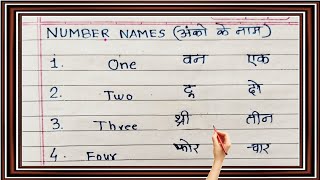 NUMBER NAMES (अंको के नाम)
1. One वन एक
2. Two टू दो
3. Three थ्री तीन
4. Four फोर चार